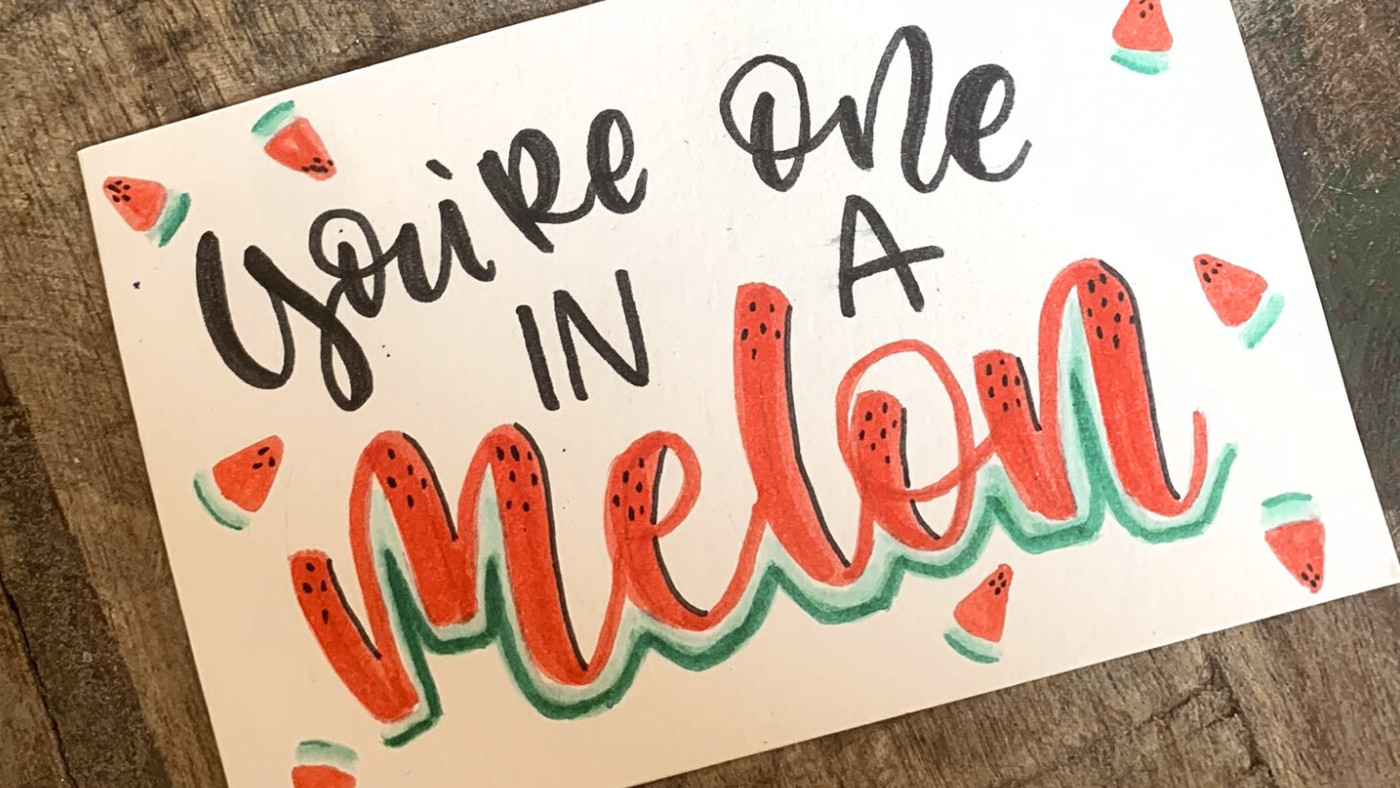 you're one
IN A
melon